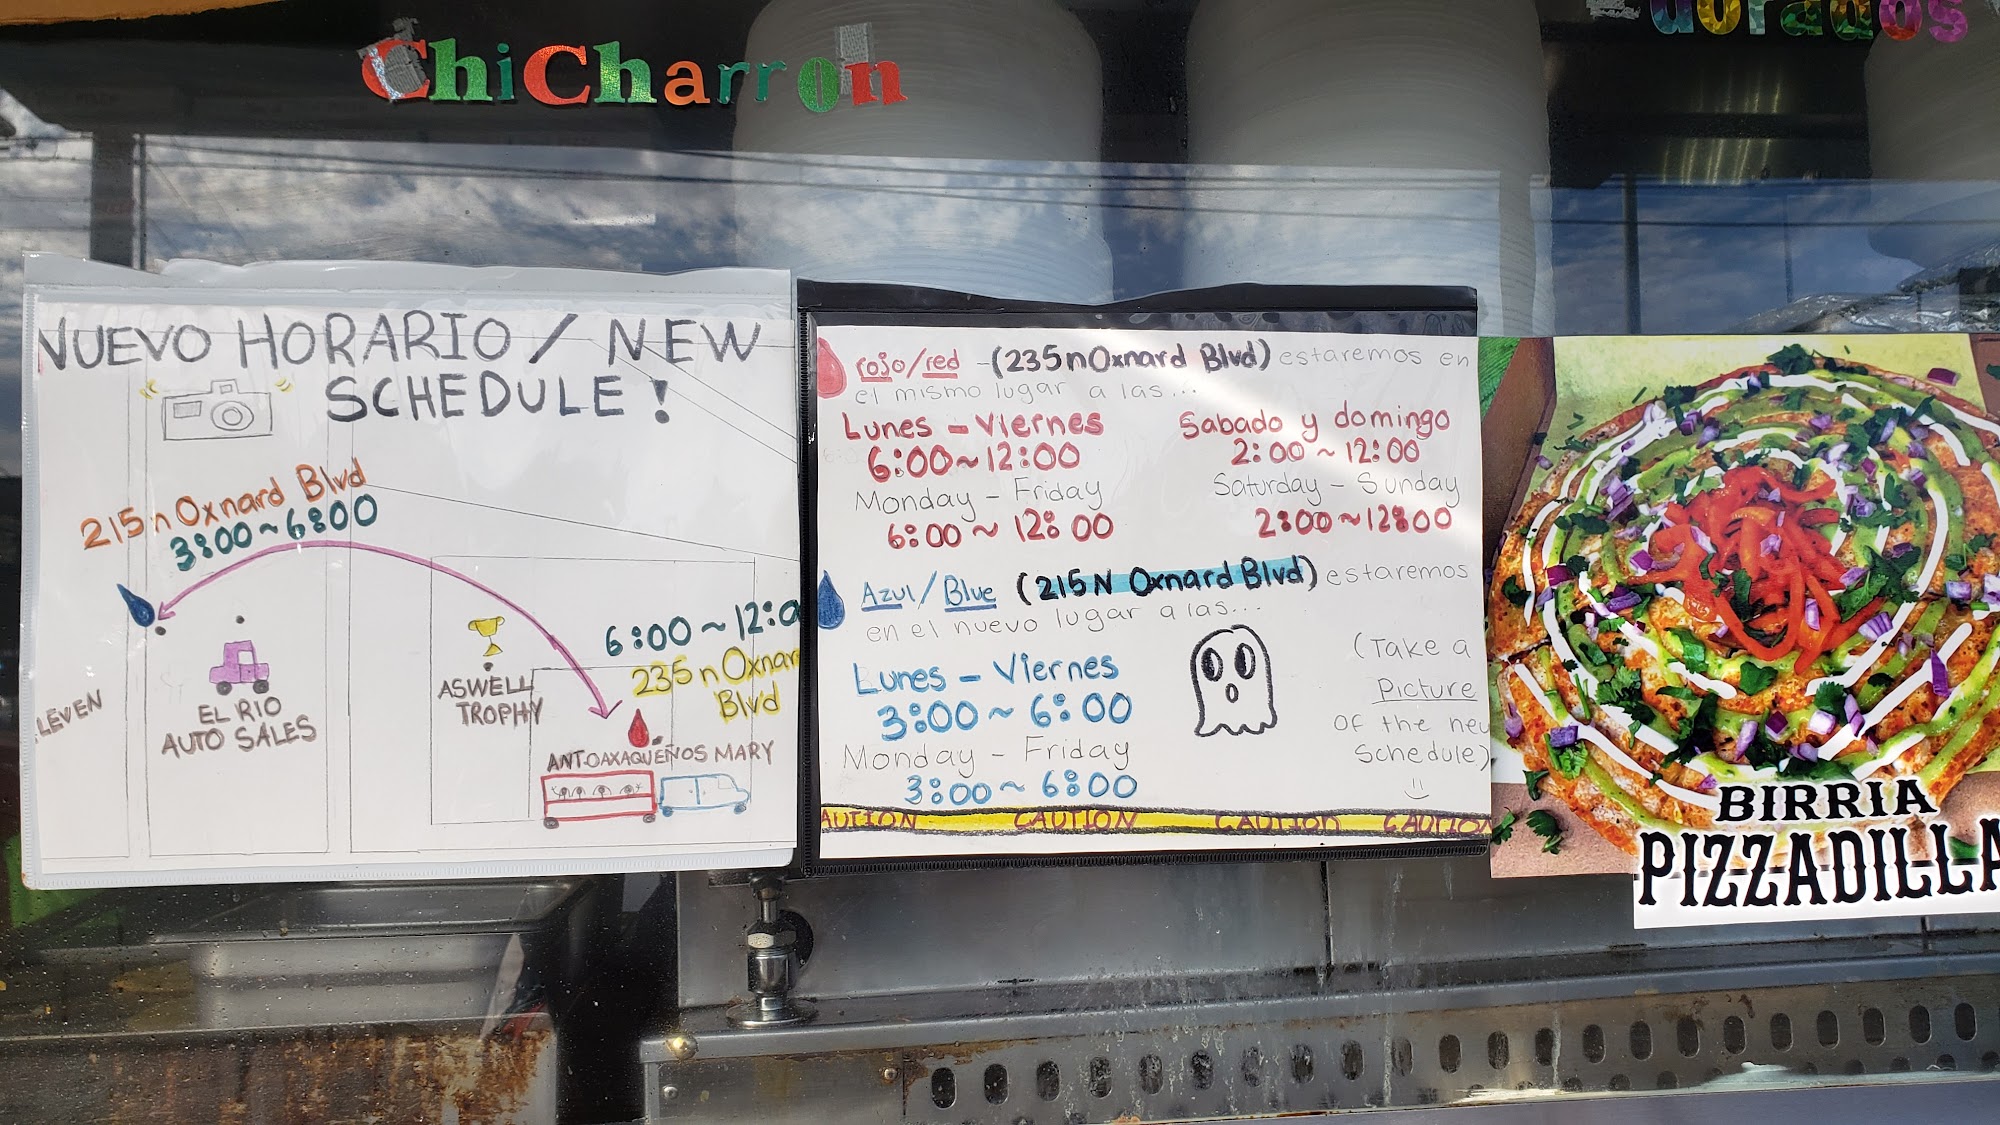 ChiCharron
dorados
NUEVO HORARIO / NEW
SCHEDULE !
215 n Oxnard Blvd
3:00 ~ 6:00
6:00 ~ 12:0
235 n Oxnar
Blvd
LEVEN
EL RIO
AUTO SALES
ASWELL
TROPHY
ANTOAXAQUEÑOS MARY
rojo/red - (235 n Oxnard Blvd) estaremos en
el mismo lugar a las...
Lunes - Viernes
6:00 ~ 12:00
Monday - Friday
6:00 ~ 12:00
Sabado y domingo
2:00 ~ 12:00
Saturday - Sunday
2:00 ~ 12:00
Azul/Blue (215 N Oxnard Blvd) estaremos
en el nuevo lugar a las...
Lunes - Viernes
3:00 ~ 6:00
Monday - Friday
3:00 ~ 6:00
(Take a
Picture
of the new
Schedule)
AUTION CAUTION CAUTION CAUTION
BIRRIA
PIZZADILLA